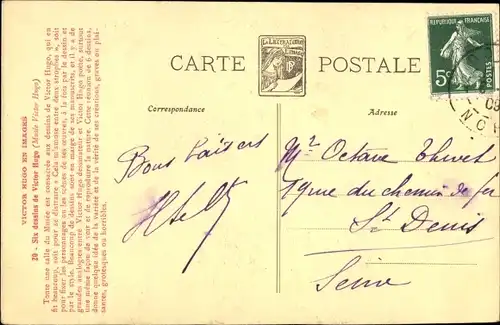 VICTOR HUGO EN IMAGES
20 - Six dessins de Victor Hugo (Musée Victor Hugo)
Toute une salle du Musée est consacrée aux dessins de Victor Hugo, qui en
fit beaucoup, soit pour se distraire « Cela m'amuse entre deux strophes », soit
pour fixer les personnages ou les scènes de ses œuvres, à la fois par le dessin et
par le style. Beaucoup de dessins sont en marge de ses manuscrits, et il y a de
grandes analogies entre Victor Hugo dessinateur et Victor Hugo poète, surtout
une même façon de voir et de reproduire la nature. Cette réunion de 6 dessins,
donne quelque idée de la variété et de la vérité de ses créations, graves ou plaisantes,
grotesques ou horribles.
CARTE POSTALE
Correspondance
Adresse
REPUBLIQUE FRANÇAISE
5c
POSTES
Bons baisers
Mr Octave
19 rue du chemin de fer
St Denis
Seine